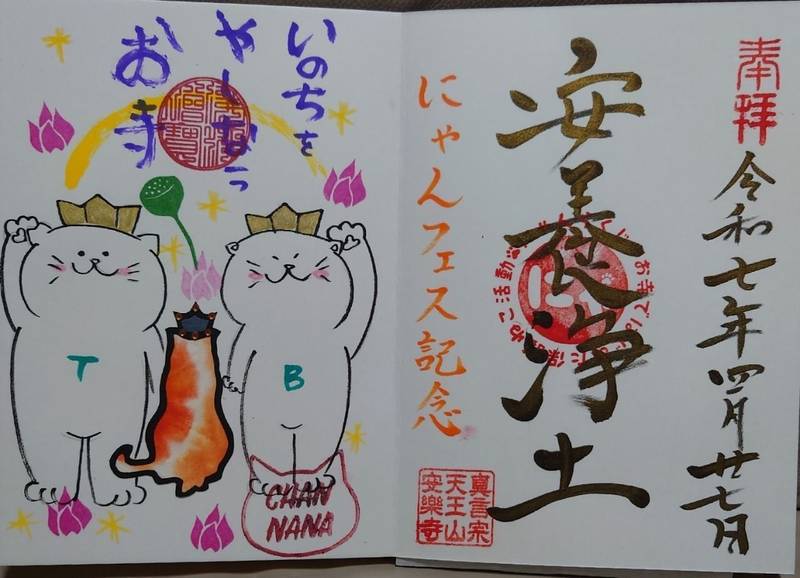 奉拝
令和七年四月廿七日
安養浄土
お寺で
ねこ活動
にゃんフェス記念
真言宗
天王山
安樂寺
いのちを
やしなう
お寺
T
B
CHAN
NANA